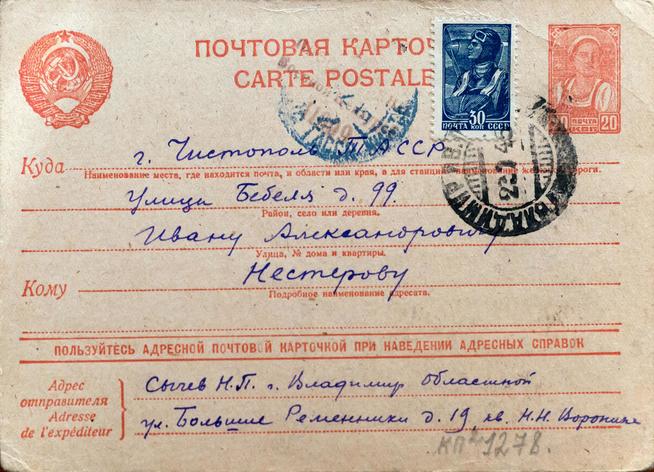 ПОЧТОВАЯ КАРТО
CARTE POSTALE
30
ПОЧТА КОП СССР
20
ПОЧТА
ВЛАДИМИР
Куда
г. Чистополь ТАССР
Наименование места, где находится почта, и области или края, а для станций наименование железной дороги.
Улица Бебеля д. 99.
Район, село или деревня.
Ивану Александровичу
Улица, № дома и квартиры.
Кому
Нестерову
Подробное наименование адресата.
ПОЛЬЗУЙТЕСЬ АДРЕСНОЙ ПОЧТОВОЙ КАРТОЧКОЙ ПРИ НАВЕДЕНИИ АДРЕСНЫХ СПРАВОК
Адрес
отправителя
Adresse
de l'expéditeur
Сычев Н.П. г. Владимир областной
ул. Большие Ременники д. 19, кв. Н.Н. Воронина
КП 1278.